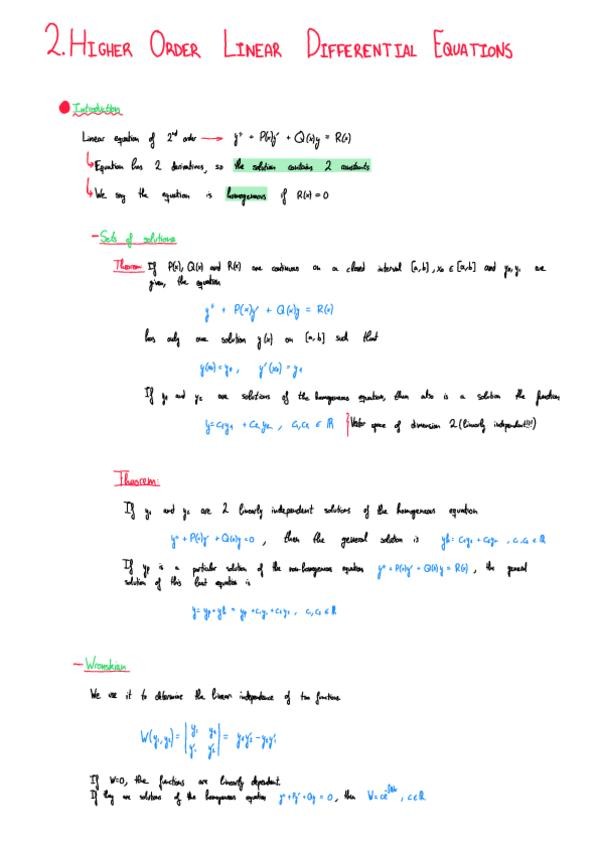 2. HIGHER ORDER LINEAR DIFFERENTIAL EQUATIONS
Introduction
Linear equation of 2nd order → y'' + P(x)y' + Q(x)y = R(x)
Equation has 2 derivatives, so the solution contains 2 constants
We say the equation is homogeneous if R(x) = 0
- Sets of solutions
Theorem: If P(x), Q(x) and R(x) are continuous on a closed interval [a,b], x₀ ∈ [a,b] and y₀, y₁ are
given, the equation
y'' + P(x)y' + Q(x)y = R(x)
has only one solution y(x) on [a,b] such that
y(x₀) = y₀, y'(x₀) = y₁
If y₁ and y₂ are solutions of the homogeneous equation, then also is a solution the function
y = c₁y₁ + c₂y₂, c₁,c₂ ∈ ℝ Vector space of dimension 2 (linearly independent!!!)
Theorem:
If y₁ and y₂ are 2 linearly independent solutions of the homogeneous equation
y'' + P(x)y' + Q(x)y = 0, then the general solution is yh = c₁y₁ + c₂y₂, c₁,c₂ ∈ ℝ
If yp is a particular solution of the non-homogeneous equation y'' + P(x)y' + Q(x)y = R(x), the general
solution of this last equation is
y = yp + yh = yp + c₁y₁ + c₂y₂, c₁,c₂ ∈ ℝ
- Wronskian
We use it to determine the linear independence of two functions
W(y₁,y₂) = | y₁ y₂ | = y₁y₂' - y₂y₁'
| y₁' y₂' |
If W=0, the functions are linearly dependent.
If they are solutions of the homogeneous equation y'' + Py' + Qy = 0, then W = ce^-∫Pdx, c∈ℝ